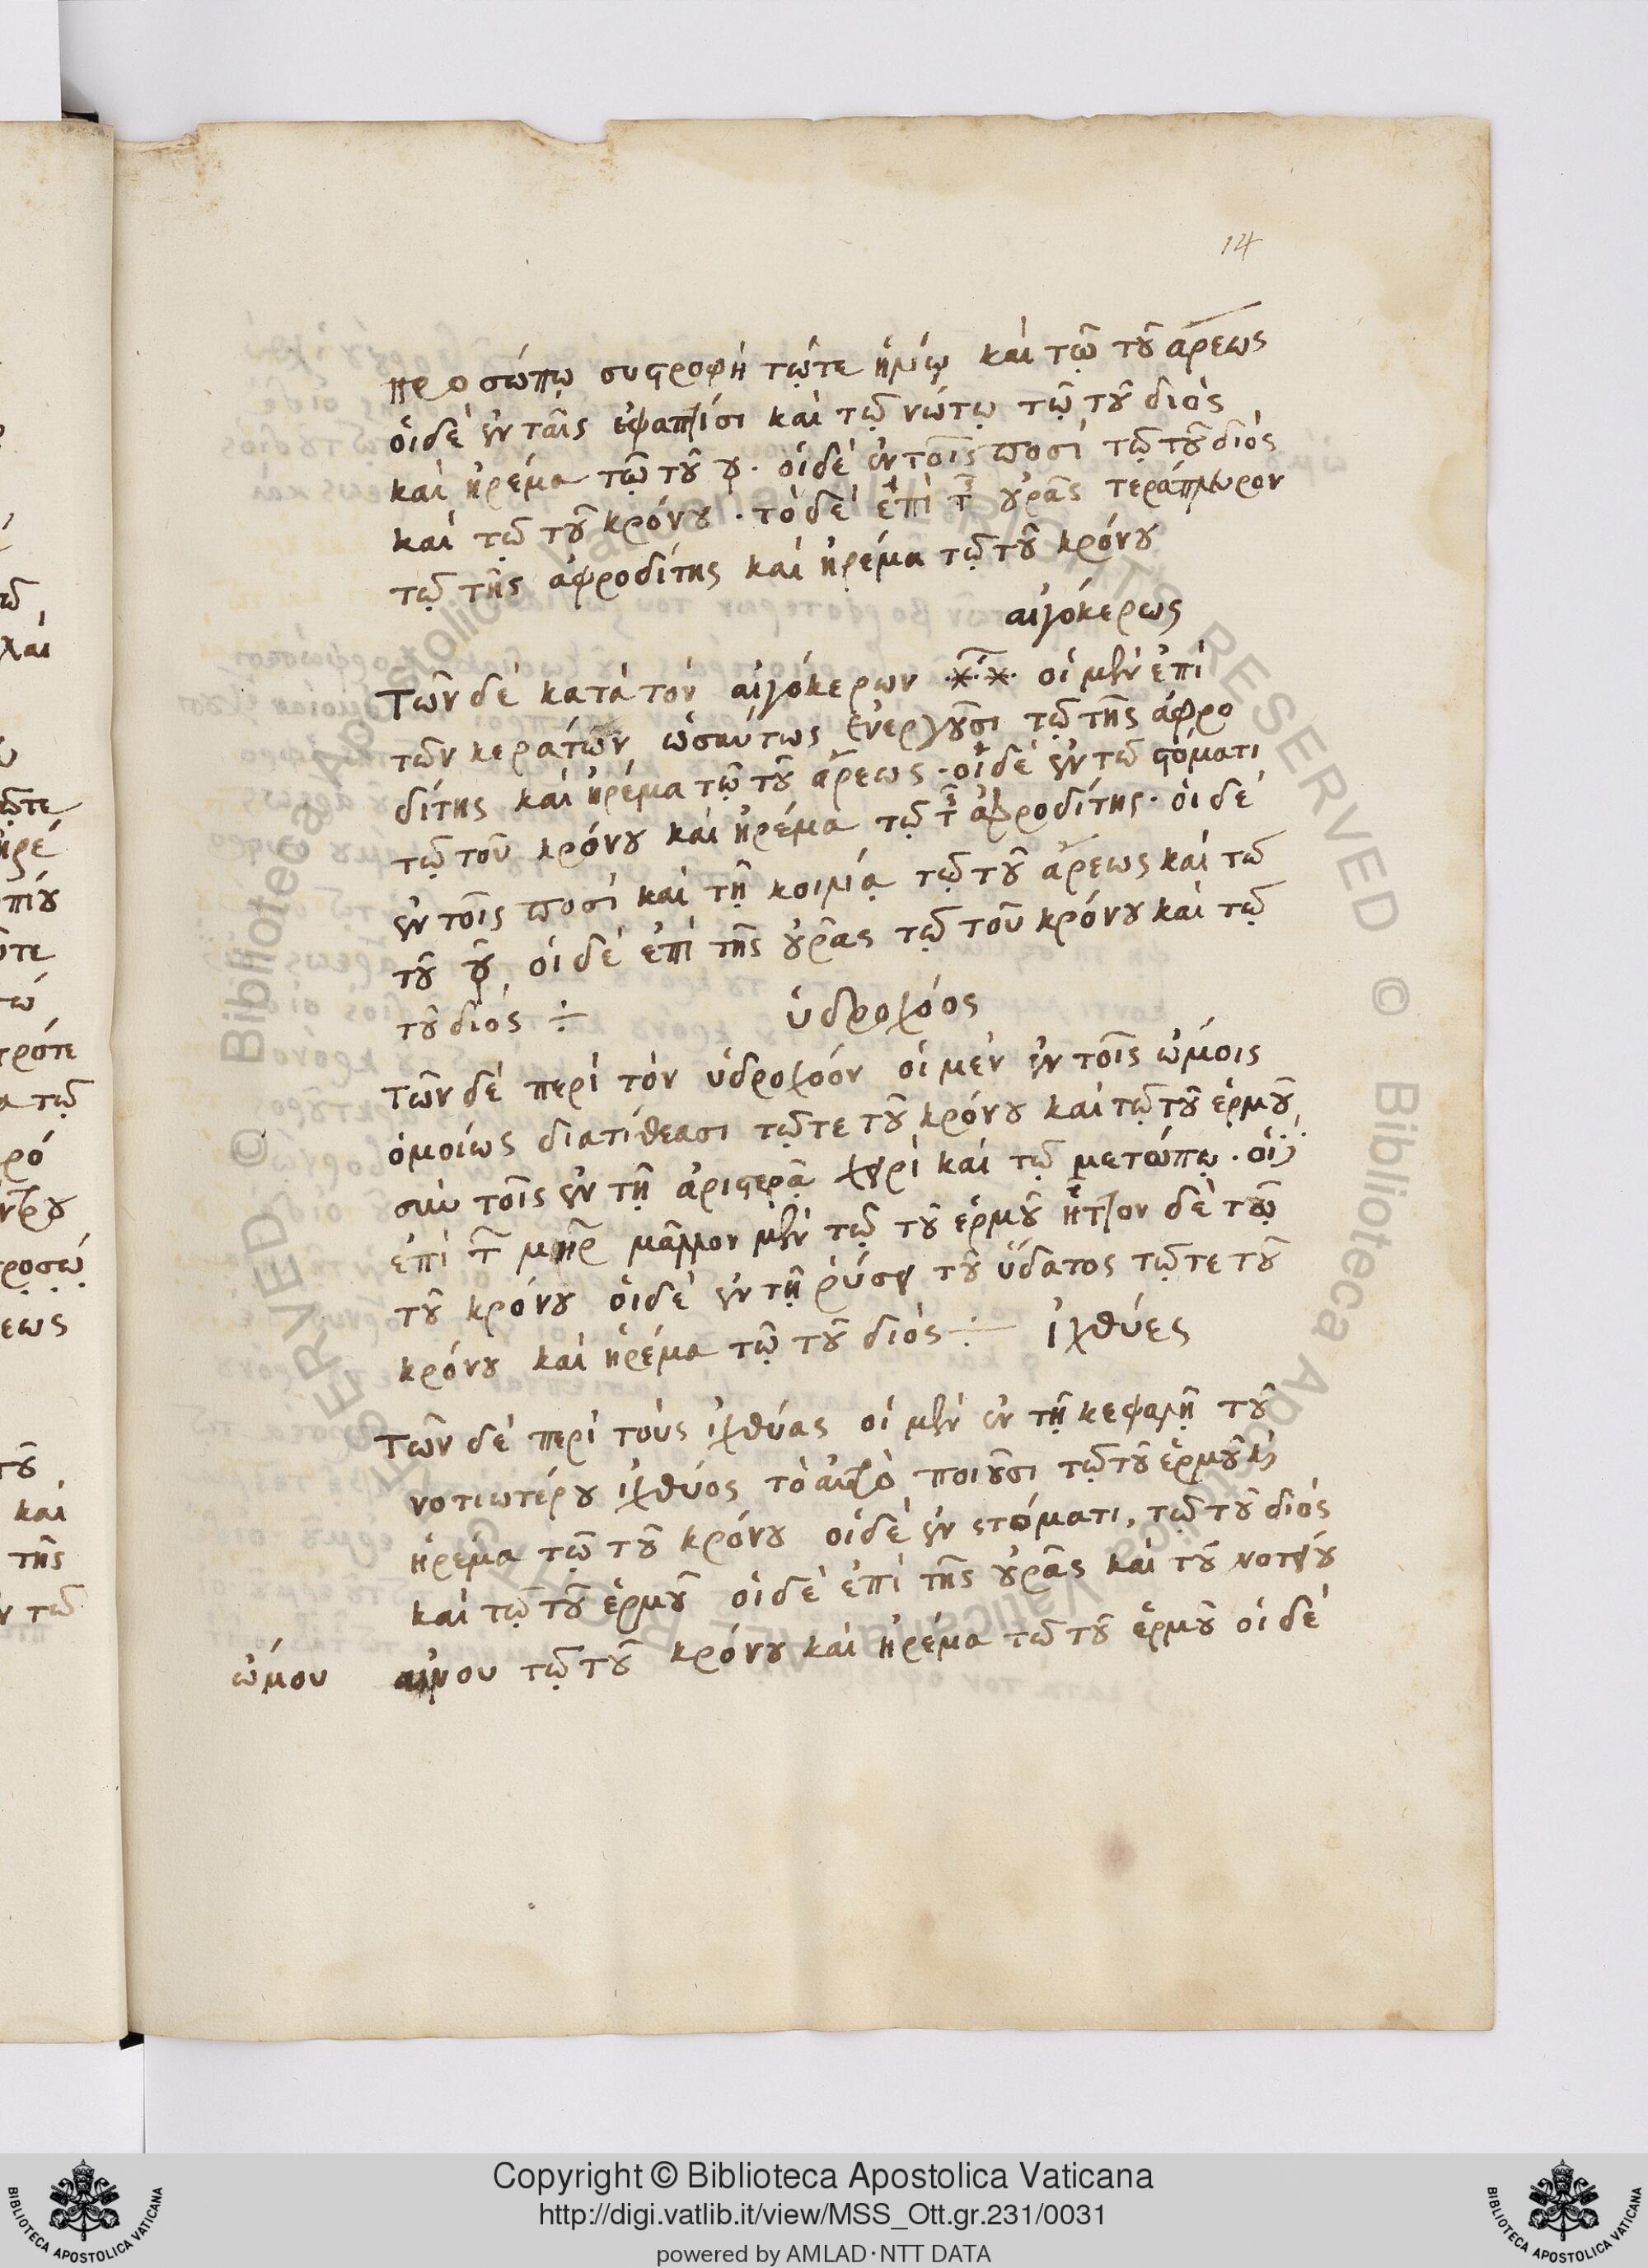 14
προσώπῳ συστροφὴ τῷτε ἡλίῳ καὶ τῷ τοῦ ἄρεως
οἱδὲ ἐν ταῖς ἐφαπτίσι καὶ τῷ νώτῳ τῷ τοῦ διὸς
καὶ ἠρέμα τῷ τοῦ ☿. οἱδὲ ἐν τοῖς ποσὶ τῷ τοῦ διὸς
καὶ τῷ τοῦ κρόνου. τὸ δὲ ἐπὶ τῆς οὐρᾶς τετράπλευρον
τῷ τῆς ἀφροδίτης καὶ ἠρέμα τῷ τοῦ κρόνου
αἰγόκερως
Τῶν δὲ κατὰ τὸν αἰγόκερων ⁎⁎ οἱ μὲν ἐπὶ
τῶν κεράτων ὡσαύτως ἐνεργοῦσι τῷ τῆς ἀφρο
δίτης καὶ ἠρέμα τῷ τοῦ ἄρεως. οἱδὲ ἐν τῷ στόματι
τῷ τοῦ κρόνου καὶ ἠρέμα τῷ τῆς ἀφροδίτης. οἱ δὲ
ἐν τοῖς ποσὶ καὶ τῇ κοιλίᾳ τῷ τοῦ ἄρεως καὶ τῷ
τοῦ ☿ οἱ δὲ ἐπὶ τῆς οὐρᾶς τῷ τοῦ κρόνου καὶ τῷ
τοῦ διός ÷ ὑδροχόος
Τῶν δὲ περὶ τὸν ὑδροχόον οἱ μὲν ἐν τοῖς ὤμοις
ὁμοίως διατίθεασι τῷτε τοῦ κρόνου καὶ τῷ τοῦ ἑρμοῦ,
σὺν τοῖς ἐν τῇ ἀριστερᾷ χειρὶ καὶ τῷ μετώπῳ. οἱ
ἐπὶ τῶν μηρῶν μᾶλλον μὲν τῷ τοῦ ἑρμοῦ ἧττον δὲ τῷ
τοῦ κρόνου οἱδὲ ἐν τῇ ῥύσει τοῦ ὕδατος τῷτε τοῦ
κρόνου καὶ ἠρέμα τῷ τοῦ διός ÷ ἰχθύες
Τῶν δὲ περὶ τοὺς ἰχθύας οἱ μὲν ἐν τῇ κεφαλῇ τοῦ
νοτιωτέρου ἰχθύος τὸ αὐτὸ ποιοῦσι τῷ τοῦ ἑρμοῦ καὶ
ἠρέμα τῷ τοῦ κρόνου οἱδὲ ἐν στόματι, τῷ τοῦ διός
καὶ τῷ τοῦ ἑρμοῦ οἱ δὲ ἐπὶ τῆς οὐρᾶς καὶ τοῦ νοτείου
ὤμου λίνου τῷ τοῦ κρόνου καὶ ἠρέμα τῷ τοῦ ἑρμοῦ οἱ δὲ
Copyright © Biblioteca Apostolica Vaticana
http://digi.vatlib.it/view/MSS_Ott.gr.231/0031
powered by AMLAD·NTT DATA
BIBLIOTECA APOSTOLICA VATICANA
BIBLIOTECA APOSTOLICA VATICANA